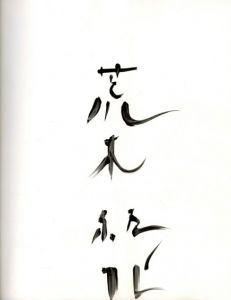 荒木経惟